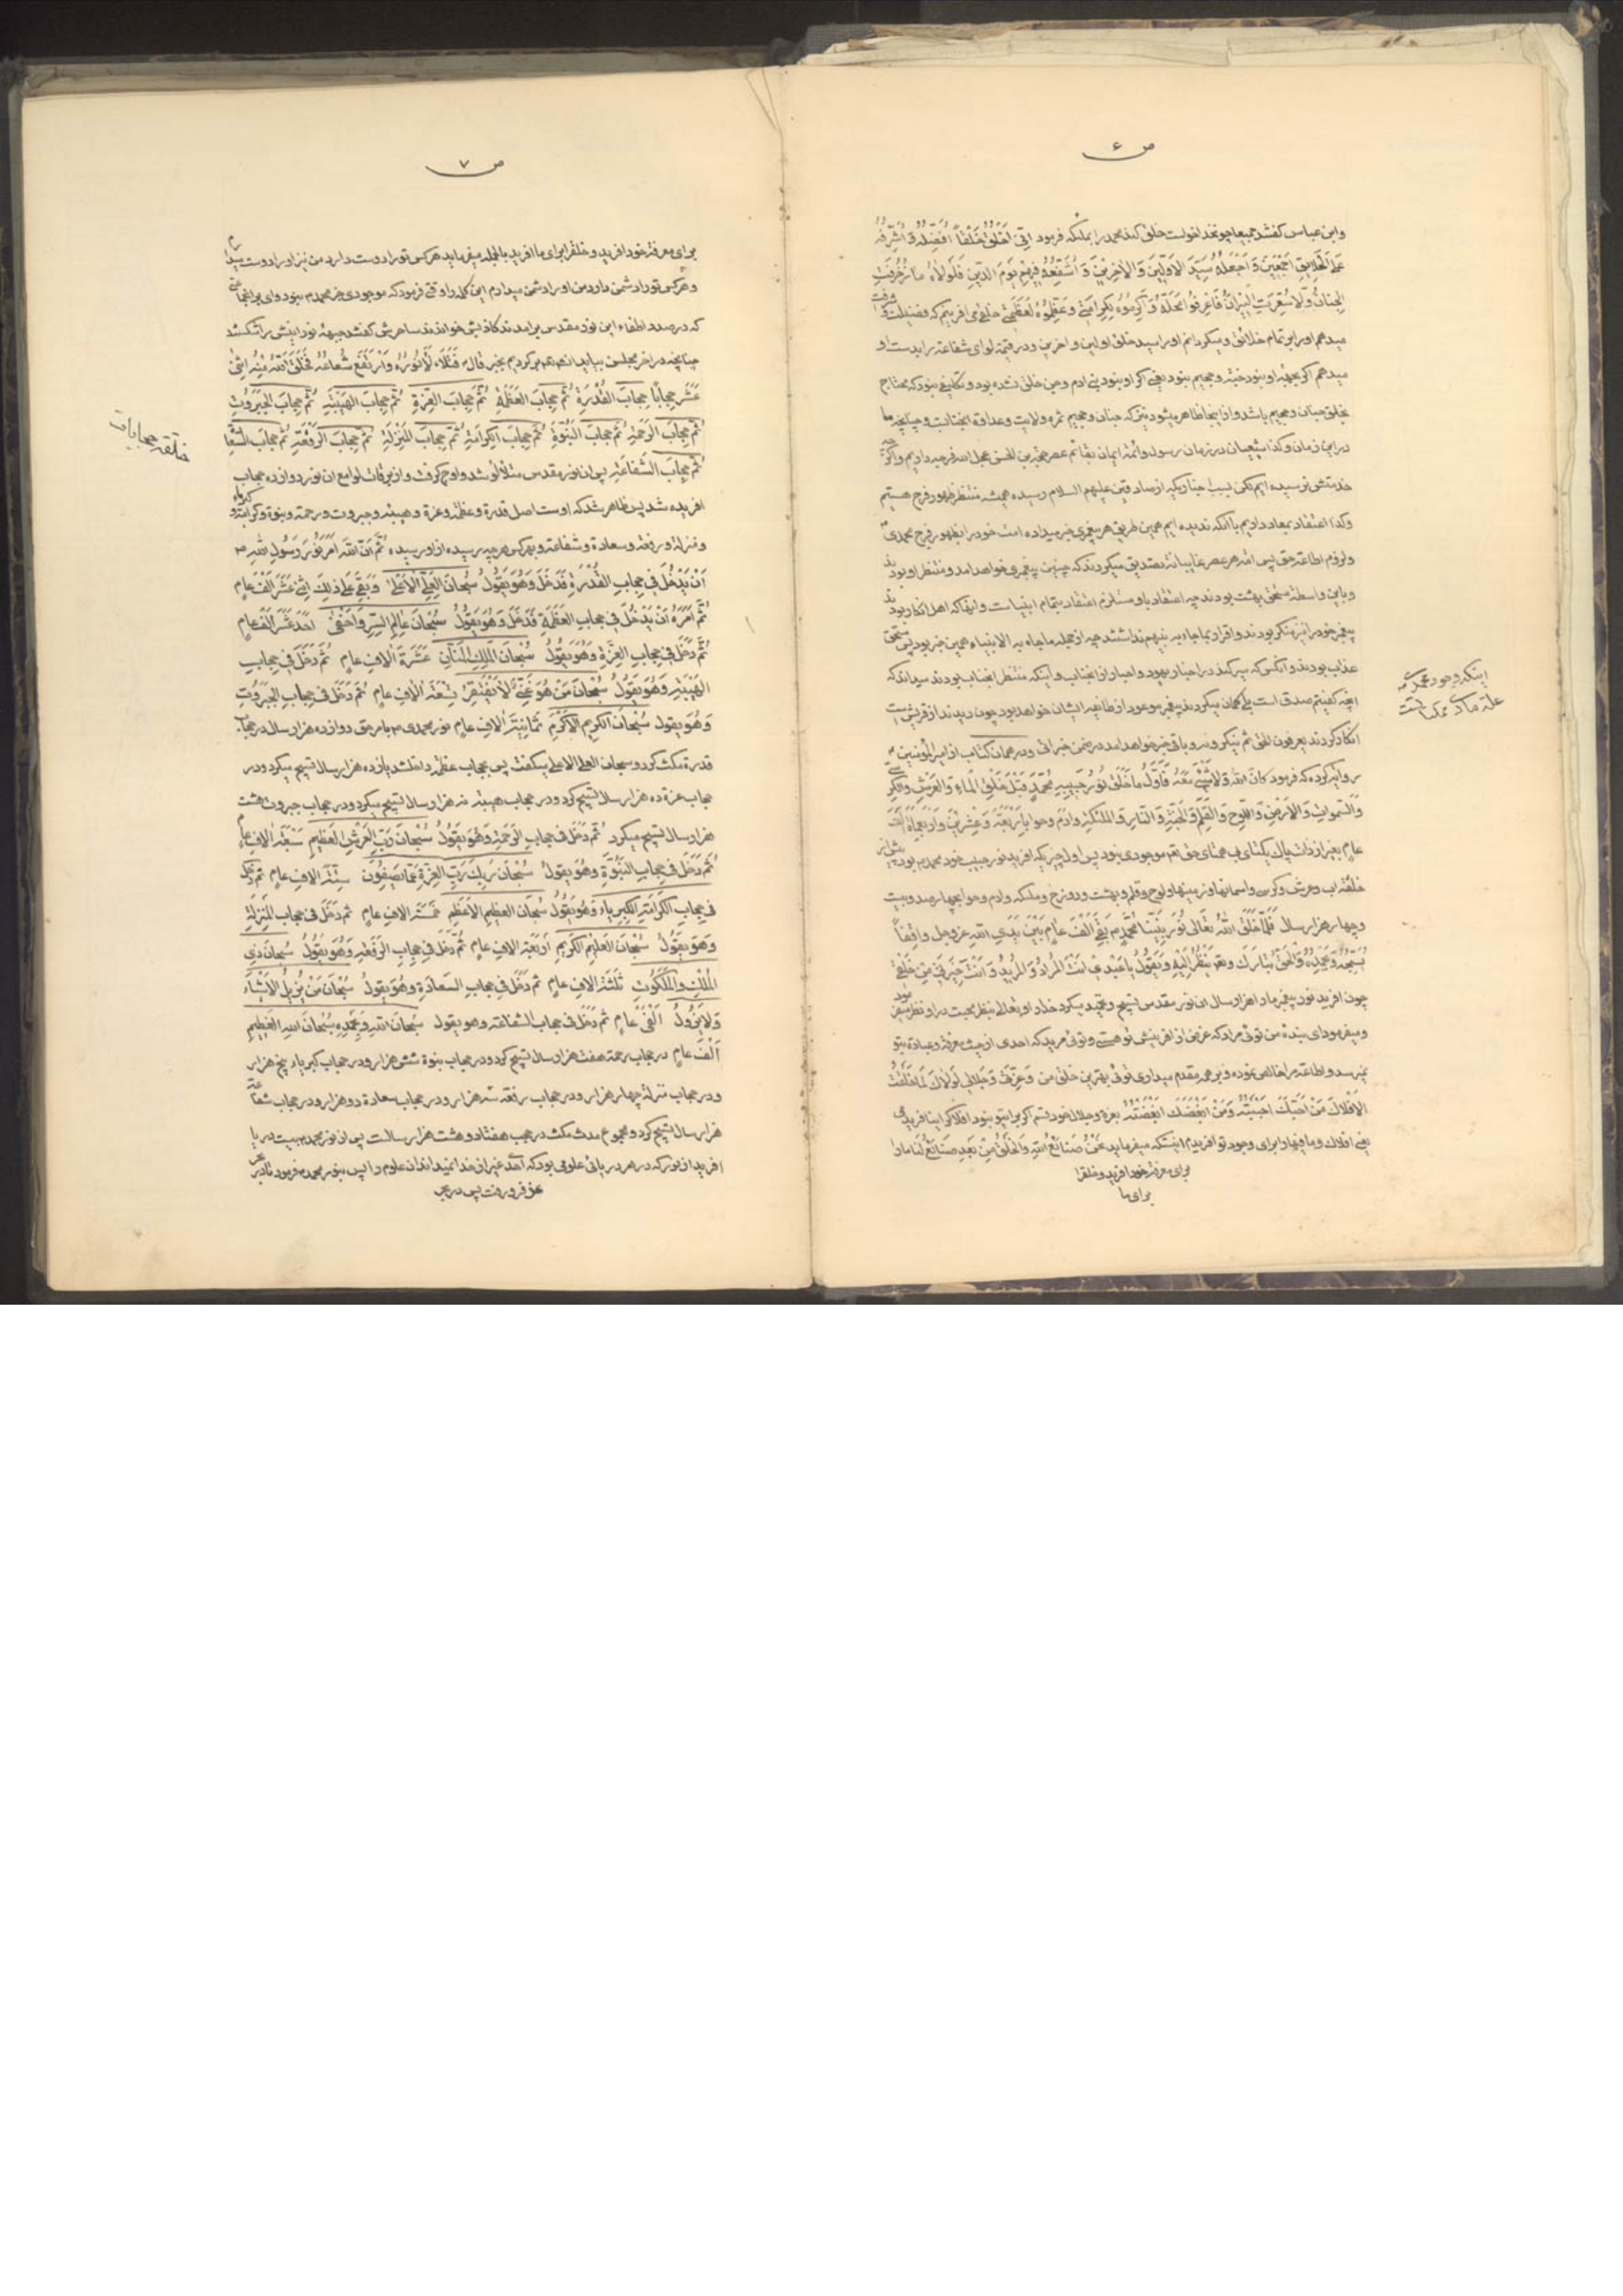 ص ۶
وابن عباس گفتند جمیعا چون خدا خواست خلق کند محمد را بملئکه فرمود اِنّی اَخْلُقُ خَلْقاً اُفَضِّلُهُ وَ اُشَرِّفُهُ
عَلَی الْخَلایِقِ اَجْمَعینَ وَ اَجْعَلُهُ سَیِّدَ الاَوَّلینَ وَ الاخِرینَ وَ اُشَفِّعُهُ فیهِمْ یَوْمَ الدّینِ فَلَولاهُ ما زُخْرِفَتِ
الجِنانُ وَلا سُعِّرَتِ النّیرانُ فَاعْرِفُوا مَحَلَّهُ وَ اَکْرِمُوهُ لِکَرامَتی وَ عَظِّمُوهُ لِعَظَمَتی خلقی می افرینم که فضیلت و شرافت
میدهم اورا بر تمام خلائق و میگردانم اورا سید خلق اولین و اخرین و در قیمة لوای شفاعة را بدست او
میدهم اگر بجهة او نبود جنة و جحیم نبود یعنی اگر او نبود بنی ادم و جن خلق نشده بود و تکلیفی نبود که محتاج
بخلق جنان و جحیم باشد و از اینجا ظاهر میشود نیز که جنان و جحیم ثمره ولایت و عداوة انجنابست و چنانچه ما
در این زمان و کذا شیعیان در زمان رسول و ائمة ایمان بقائم عصر حجة بن الحسن عجل الله فرجه داریم و اگرچه
خدمتش نرسیده ایم لکن بسبب اخباریکه از صادقین علیهم السلام رسیده همیشه منتظر ظهور فرج هستیم
وکذا اعتقاد بمعاد داریم با آنکه ندیده ایم همین طریق هر پیغمبری خبر میداده امت خود را بظهور فرج محمدی ص
و لزوم اطاعة حق پس امة هر عصر غایبانه تصدیق میکردند که چنین پیغمبری خواهد امد و منتظر او بودند
و باین واسطه مستحق بهشت بودند چه اعتقاد باو مستلزم اعتقاد بتمام انبیا است و انها که اهل انکار بودند
پیغمبر خود را نیز منکر بودند و اقرار بما جاء به نبیهم نداشتند چه از جمله ما جاء به الانبیاء همین خبر بود پس مستحق
عذاب بودند و آنکس که سیر کند در اخبار یهود و احبار از انجناب و اینکه منتظر انجناب بودند میداند که
انچه گفتیم صدق است بلی گمان میکردند پیغمبر موعود از طایفه ایشان خواهد بود چون دیدند از قریش است
انکار کردند یعرفون الحق ثم ینکرونه و باقی خبر خواهد امد در ضمن خبر اتی و در همان کتاب از امیر المؤمنین ع
روایة کرده که فرمود کانَ اللهُ وَلا شَیْءَ مَعَهُ فَاَوَّلُ ما خَلَقَ نُورُ حَبیبِهِ مُحَمَّدٍ قَبْلَ خَلْقِ الْماءِ وَ العَرْشِ وَ الکُرسی
وَ السَّمواتِ وَ الاَرْضِ وَ اللَّوحِ وَ القَلَمِ وَ الجَنَّةِ وَ النّارِ وَ المَلئکةِ وَ ادَمَ وَ حوا باَرْبَعَةٍ وَ عِشْرینَ وَ اَرْبَعِمائَةِ اَلْفَ
عامٍ بغیر از ذات پاک یکتای بی همتای حق تعم موجودی نبود پس اول چیزیکه افرید نور حبیب خود محمد ص بود پیش از
خلقت اب و عرش و کرسی و اسمانها و زمینها و لوح و قلم و بهشت و دوزخ و ملئکه و ادم و حوا بچهارصد و بیست
وچهار هزار سال فَلَمّا خَلَقَ اللهُ تَعالی نُورَ نَبِیِّنا مُحَمَّدٍ ص بَقِیَ اَلْفَ عامٍ بَیْنَ یَدَیِ اللهِ عز وجل واقِفاً
یُسَبِّحُهُ وَ یُحَمِّدُهُ وَ الْحَقُّ تَبارَکَ وَ تعم یَنْظُرُ اِلَیْهِ وَ یَقُولُ یا عَبْدی اَنْتَ الْمُرادُ وَ المُریدُ وَ اَنْتَ خِیَرَتی مِنْ خَلْقی
چون افرید نور پیغمبر ما را هزار سال ان نور مقدس تسبیح و تحمید میکرد خدا را و او تعالی بنظر محبت در او نظر میفرمود
و میفرمود ای بنده من توئی مراد که غرض از افرینش تو هستی و توئی مرید که احدی از حیث معرفة و عبادة بتو
نمیرسد و اطاعة مرا خالص نموده و بر همه مقدم میداری توئی بهترین خلق من وَ عِزَّتی وَ جَلالی لَولاکَ لَما خَلَقْتُ
الاَفْلاکَ مَنْ اَحَبَّکَ اَحْبَبْتُهُ وَمَنْ اَبْغَضَکَ اَبْغَضْتُهُ بعزة و جلال خود قسم اگر برا تو نبود افلاک را نیافریدمی
یعنی افلاک و ما فیها را برای وجود تو افریدم اینستکه میفرماید نَحْنُ صَنائِعُ اللهِ وَ الخَلْقُ مِنْ بَعدِ صَنائِعُ لَنا مارا
برای معرفة خود افرید و خلقرا
برای ما
اینکه وجود محمدی ص
علة مادی ممکنا است
ص ۷
برای معرفة خود افرید و خلقرا برای ما افرید بالجمله میفرماید هر کس تورا دوست دارد من نیز اورا دوست میدارم
و هر کس تورا دشمن دارد من اورا دشمن میدارم این کلمه را وقتی فرمود که موجودی جز محمد ص نبود وای بر انجماعتی
که در صدد اطفاء این نور مقدس برامدند کاذبش خواندند ساحرش گفتند جبهه نورانیش را شکستند
چنانچه در اخر مجلس بیاید انشاءالله برگردیم بخبر قال ع فَتَلَأْلَأَ نُورُهُ وَ ارْتَفَعَ شُعاعُهُ فَخَلَقَ اللهُ مِنْهُ اِثْنی
عَشَرَ حِجاباً حِجابَ القُدْرَةِ ثُمَّ حِجابَ العَظَمَةِ ثُمَّ حِجابَ العِزَّةِ ثُمَّ حِجابَ الهَیْبَةِ ثُمَّ حِجابَ الجَبَرُوتِ
ثُمَّ حِجابَ الرَّحْمَةِ ثُمَّ حِجابَ النُّبُوَّةِ ثُمَّ حِجابَ الکِرامَةِ ثُمَّ حِجابَ المَنْزِلَةِ ثُمَّ حِجابَ الرَّفْعَةِ ثُمَّ حِجابَ السَّعادَةِ
ثُمَّ حِجابَ الشَّفاعَةِ پس ان نور مقدس متلألأ شد و اوج گرفت و از برقات لوامع ان نور دوازده حجاب
افریده شد پس ظاهر شد که اوست اصل قدرة و عظمة و عزة و هیبة و جبروت و رحمة و نبوة و کرامة و کبریاء
و منزلة و رفعة و سعادة و شفاعة و بهر کس هر چه رسیده از او رسیده ثُمَّ اَنَّ اللهَ اَمَرَ نُورَ رَسُولِ اللهِ ص
اَنْ یَدْخُلَ فی حِجابِ القُدْرَةِ فَدَخَلَ وَ هُوَ یَقُولُ سُبْحانَ العَلِیِّ الاَعْلی وَ بَقِیَ عَلی ذلِکَ اِثْنی عَشَرَ اَلْفَ عامٍ
ثُمَّ اَمَرَهُ اَنْ یَدْخُلَ فی حِجابِ العَظَمَةِ فَدَخَلَ وَ هُوَ یَقُولُ سُبْحانَ عالِمِ السِّرِّ وَ اَخْفی اَحَدَ عَشَرَ اَلْفَ عامٍ
ثُمَّ دَخَلَ فی حِجابِ العِزَّةِ وَ هُوَ یَقُولُ سُبْحانَ المَلِکِ المَنّانِ عَشَرَةَ الافِ عامٍ ثُمَّ دَخَلَ فی حِجابِ
الهَیْبَةِ وَ هُوَ یَقُولُ سُبْحانَ مَنْ هُوَ غَنِیٌّ لا یَفْتَقِرُ تِسْعَةَ الافِ عامٍ ثُمَّ دَخَلَ فی حِجابِ الجَبَرُوتِ
وَ هُوَ یقول سُبْحانَ الکَریمِ الاَکْرَمِ ثَمانِیَةَ الافِ عامٍ نور محمدی ص بامر حق دوازده هزار سال در حجاب
قدرة مکث کرد و سبحان العلی الاعلی میگفت پس بحجاب عظمة داخل شد یازده هزار سال تسبیح میکرد و در
حجاب عزة ده هزار سال تسبیح کرد و در حجاب هیبة نه هزار سال تسبیح میکرد و در حجاب جبروت هشت
هزار سال تسبیح میکرد ثُمَّ دَخَلَ فی حِجابِ الرَّحْمَةِ وَ هُوَ یَقُولُ سُبْحانَ رَبِّ العَرْشِ العَظیمِ سَبْعَةَ الافِ عام
ثُمَّ دَخَلَ فی حِجابِ النُّبُوَّةِ وَ هُوَ یَقُولُ سُبْحانَ رَبِّکَ رَبِّ العِزَّةِ عَمّا یَصِفُونَ سِتَّةَ الافِ عامٍ ثم دَخَلَ
فی حِجابِ الکَرامَةِ الکِبْرِیاء وَ هُوَ یَقُولُ سُبْحانَ العَظیمِ الاَعْظَمِ خَمْسَةَ الافِ عامٍ ثم دَخَلَ فی حِجابِ المَنْزِلَةِ
وَ هُوَ یَقُولُ سُبْحانَ العَلیمِ الکَریمِ اَرْبَعَةَ الافِ عامٍ ثُمَّ دَخَلَ فی حِجابِ الرَّفْعَةِ وَ هُوَ یَقُولُ سُبْحانَ ذِی
المُلْکِ وَ المَلَکُوتِ ثَلثَةَ الافِ عامٍ ثم دَخَلَ فی حِجابِ السَّعادَةِ وَ هُوَ یَقُولُ سُبْحانَ مَنْ یُزیلُ الاَشْیاءَ
وَلا یَزُولُ اَلْفَیْ عامٍ ثم دَخَلَ فی حجاب الشفاعة و هو یقول سُبْحانَ اللهِ وَ بِحَمْدِهِ سُبْحانَ اللهِ العَظیمِ
اَلْفَ عامٍ در حجاب رحمة هفت هزار سال تسبیح کرد و در حجاب نبوة شش هزار و در حجاب کبریاء پنج هزار
و در حجاب منزلة چهار هزار و در حجاب رفعة سه هزار و در حجاب سعادة دو هزار و در حجاب شفاعة
هزار سال تسبیح کرد و مجموع مدت مکث در حجب هفتاد و هشت هزار سالست پس از نور محمد ص بیست دریا
افرید از نور که در هر دریائی علومی بود که احدی غیر از خدا نمیداند ان علوم را پس بنور محمد ص فرمود تا در بحر
عز فرو رفت پس در بحر
خلقة حجابات